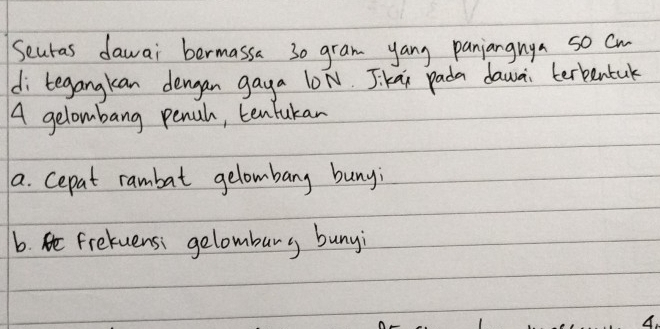 Seutas dawai bermassa 30 gram yang panjangnya 50 cm
di tegangkan dengan gaya 10N. Jika pada dawai terbentuk
4 gelombang penuh, tentukan
a. Cepat rambat gelombang bunyi
b. frekuensi gelombang bunyi